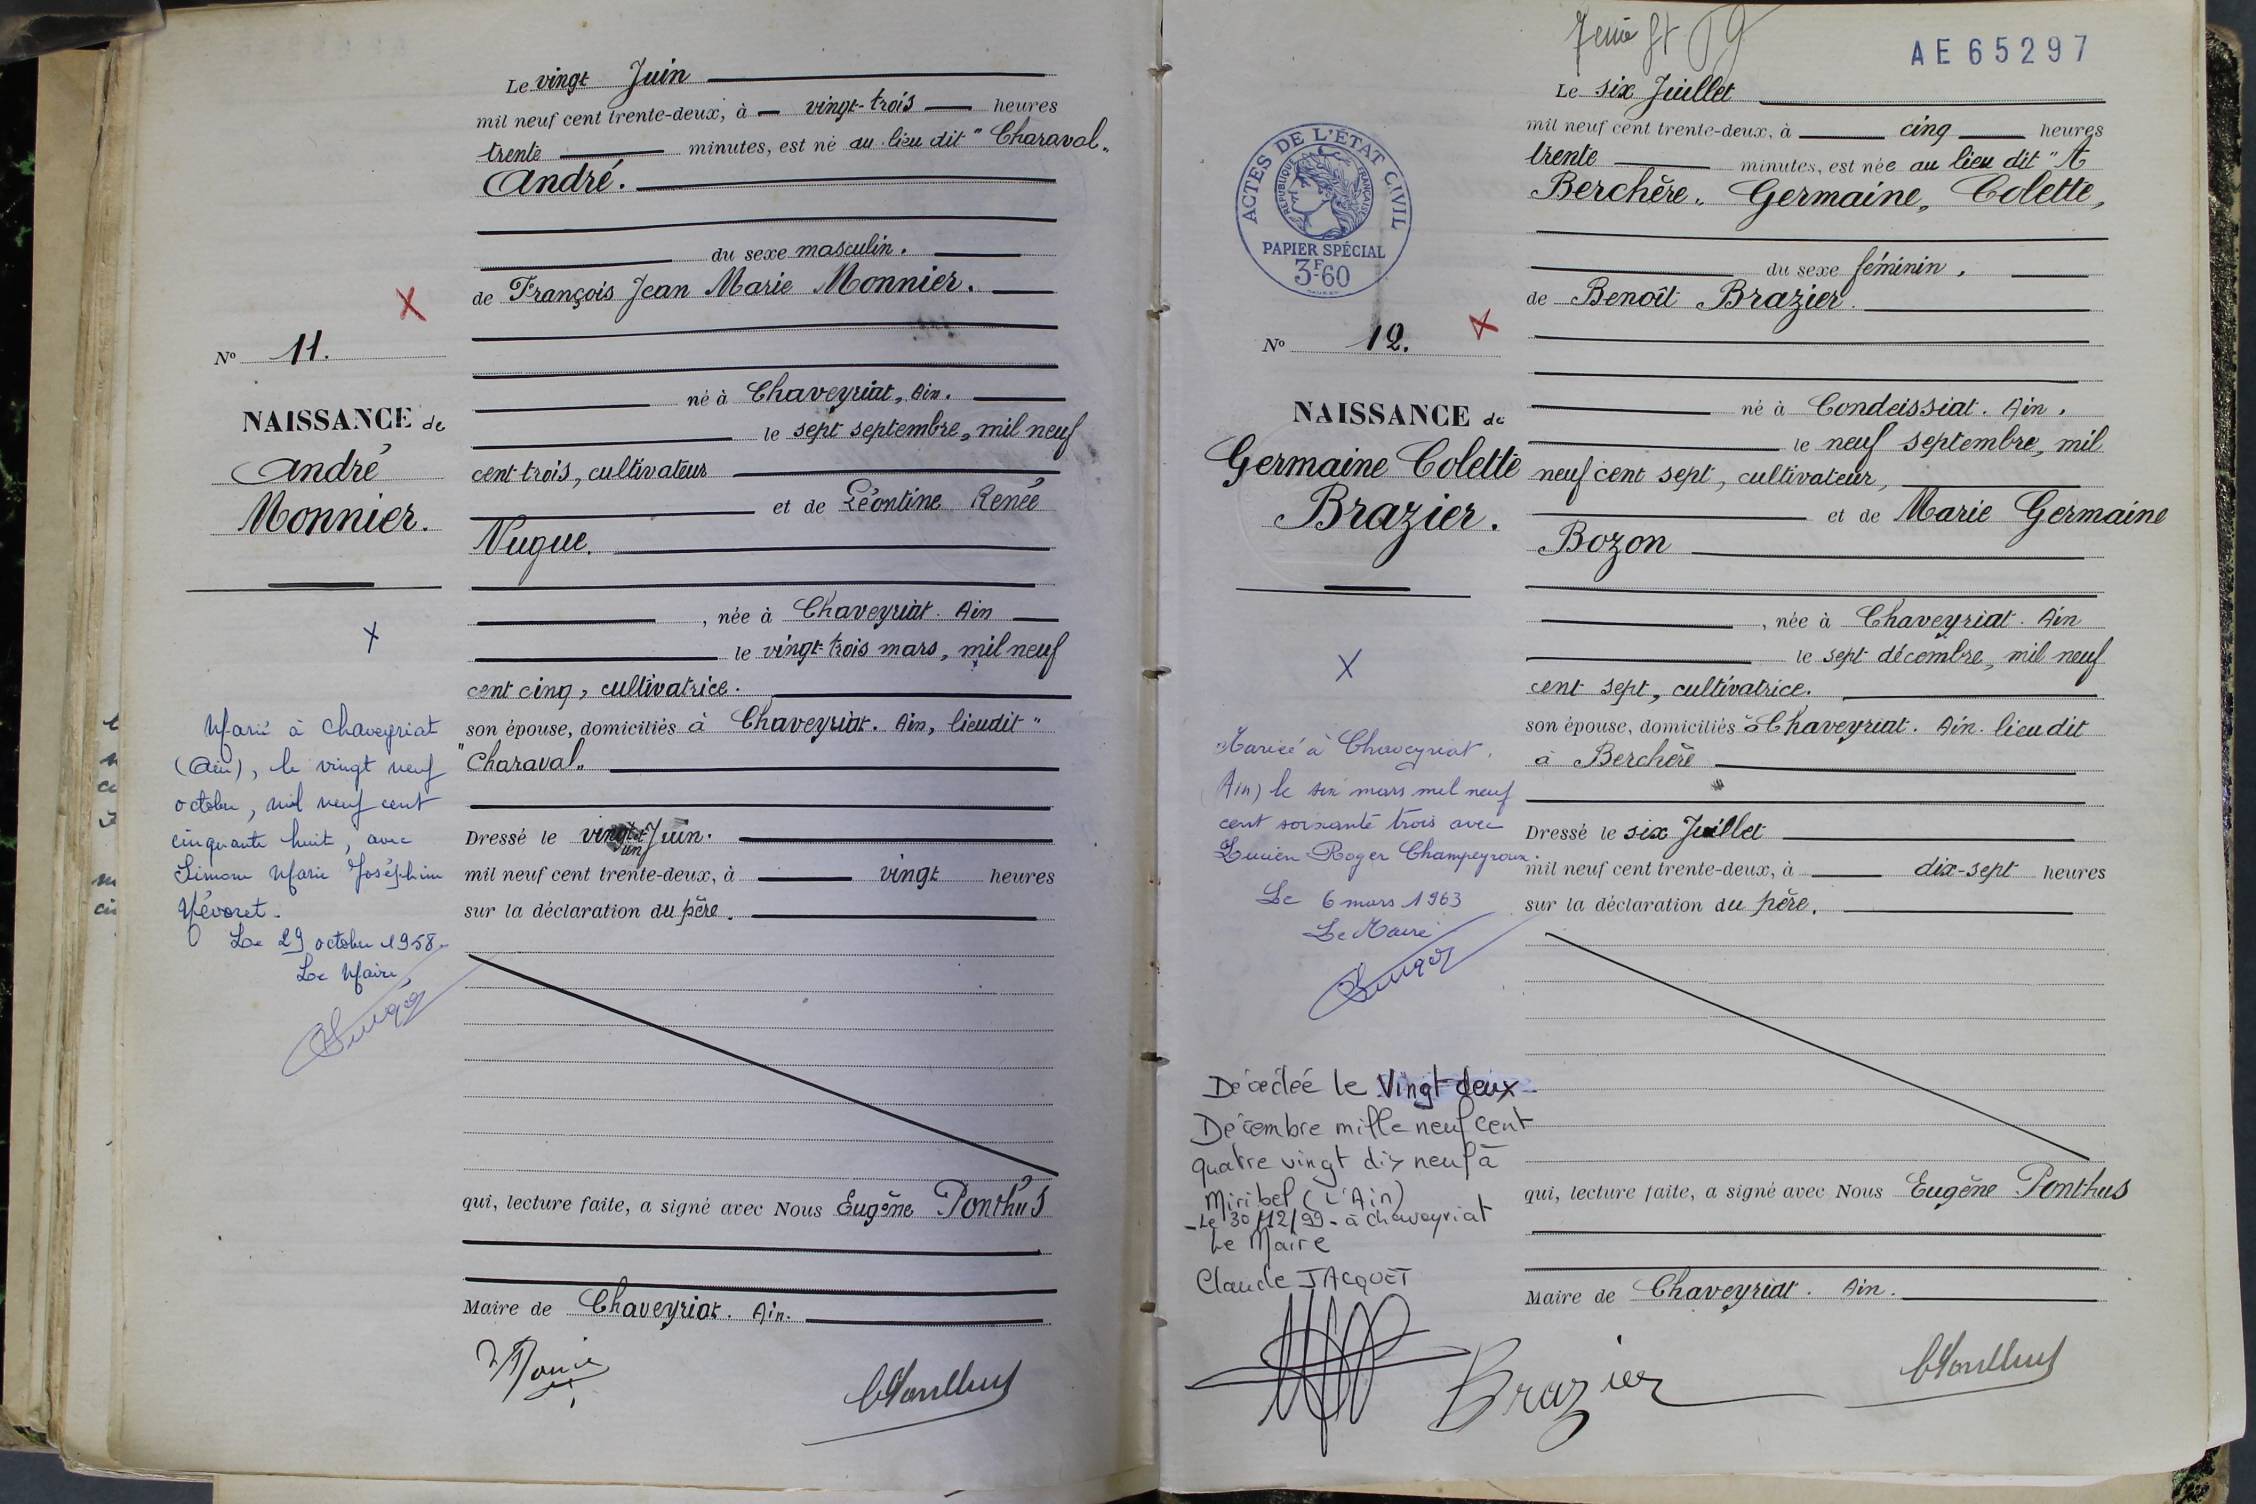 Le vingt Juin
mil neuf cent trente-deux, à vingt-trois heures
trente minutes, est né au lieu dit "Charaval"
André.
du sexe masculin.
de François Jean Marie Monnier.
né à Chaveyriat, Ain.
le sept septembre, mil neuf
cent trois, cultivateur
et de Léontine Renée
Nugue.
, née à Chaveyriat. Ain
le vingt-trois mars, mil neuf
cent cinq, cultivatrice.
son épouse, domiciliés à Chaveyriat. Ain, lieudit "
"Charaval"
Dressé le vingt et un Juin.
mil neuf cent trente-deux, à vingt heures
sur la déclaration du père.
qui, lecture faite, a signé avec Nous Eugène Ponthus
Maire de Chaveyriat. Ain.
No 11.
NAISSANCE de
André
Monnier.
Marié à Chaveyriat
(Ain), le vingt neuf
octobre, mil neuf cent
cinquante huit, avec
Simone Marie Joséphine
Mévoret.
Le 29 octobre 1958.
Le Maire,
AE 65297
Le six Juillet
mil neuf cent trente-deux, à cinq heures
trente minutes, est née au lieu dit "A
Berchère. Germaine, Colette,
du sexe féminin.
de Benoît Brazier.
né à Condeissiat. Ain.
le neuf septembre, mil
neuf cent sept, cultivateur,
et de Marie Germaine
Bozon
, née à Chaveyriat. Ain
le sept décembre, mil neuf
cent sept, cultivatrice.
son épouse, domiciliés à Chaveyriat. Ain. lieudit
à Berchère
Dressé le six Juillet
mil neuf cent trente-deux, à dix-sept heures
sur la déclaration du père.
qui, lecture faite, a signé avec Nous Eugène Ponthus
Maire de Chaveyriat. Ain.
Brazier
ACTES DE L'ÉTAT CIVIL
RÉPUBLIQUE FRANÇAISE
PAPIER SPÉCIAL
3F60
No 12.
NAISSANCE de
Germaine Colette
Brazier.
Mariée à Chaveyriat.
(Ain) le six mars mil neuf
cent soixante trois avec
Lucien Roger Champeyroux.
Le 6 mars 1963
Le Maire
Décédée le Vingt deux
Décembre mille neuf cent
quatre vingt dix neuf à
Miribel (L'Ain)
- Le 30/12/99 - à Chaveyriat
Le Maire
Claude JACQUET